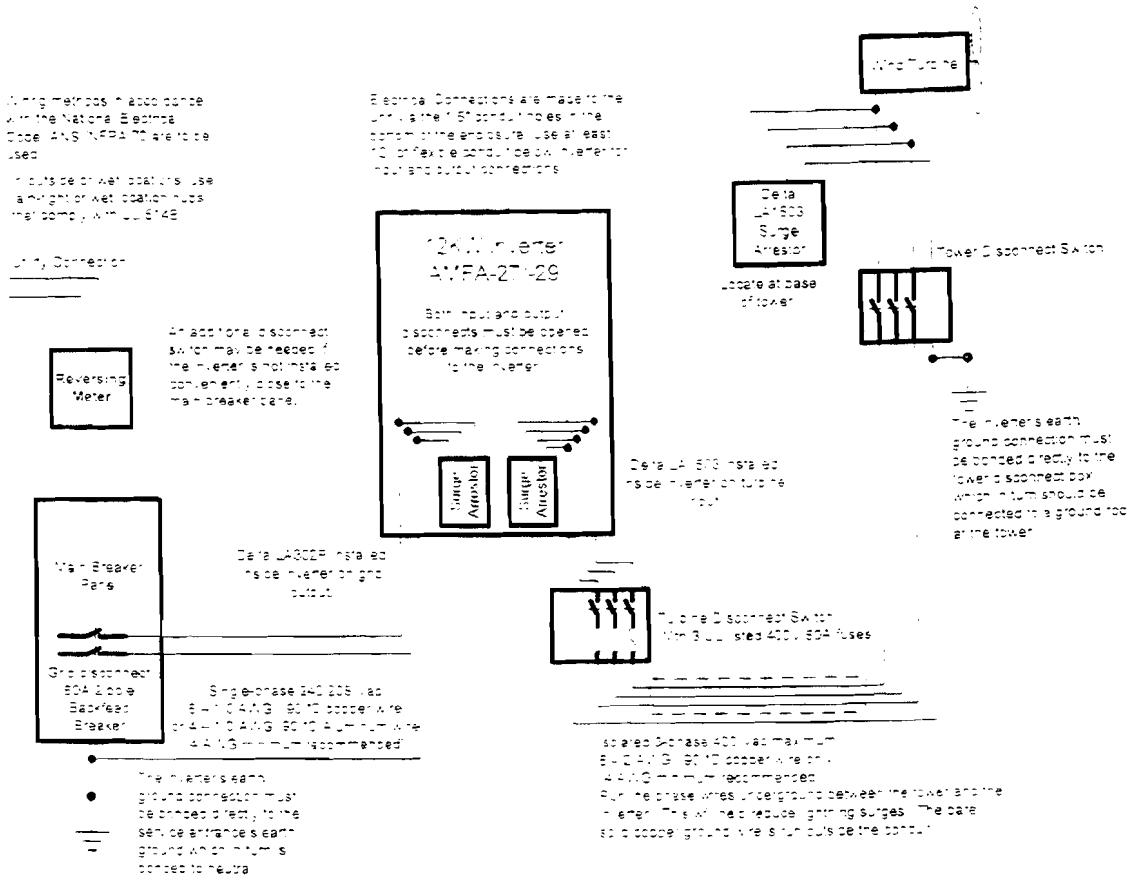 Wiring methods in accordance
with the National Electrical
Code, ANSI/NFPA 70 are to be
used
In outside or wet locations, use
rain-tight or wet location hubs
that comply with UL 514B
Utility Connection
Reversing
Meter
An additional disconnect
switch may be needed if
the inverter is not installed
conveniently close to the
main breaker panel.
Main Breaker
Panel
Grid disconnect
60A 2-pole
Backfeed
Breaker
The inverter's earth
ground connection must
be bonded directly to the
service entrance's earth
ground which in turn is
bonded to neutral
Electrical Connections are made to the
unit via the 1.5" conduit holes in the
bottom of the enclosure. Use at least
12" of flexible conduit below inverter for
input and output connections
12KW Inverter
Both input and output
disconnects must be opened
before making connections
to the inverter
Surge
Arrestor
Surge
Arrestor
Delta LA302R installed
inside inverter on grid
output.
Single-phase 240/208 Vac
AWG 90°C copper wire
AWG 90°C Aluminum wire
4 AWG minimum recommended
Wind Turbine
Delta
LA1603
Surge
Arrestor
Locate at base
of tower
Tower Disconnect Switch
The inverter's earth
ground connection must
be bonded directly to the
tower disconnect box
which in turn should be
connected to a ground rod
at the tower
Delta LA1603 installed
inside inverter on turbine
input
Turbine Disconnect Switch
With 3 UL listed 400V 60A fuses
Isolated 3-phase 400 Vac maximum
AWG 90°C copper wire only
4 AWG minimum recommended
Run the phase wires underground between the tower and the
inverter. This will help reduce lightning surges. The bare
solid copper ground wire is run outside the conduit